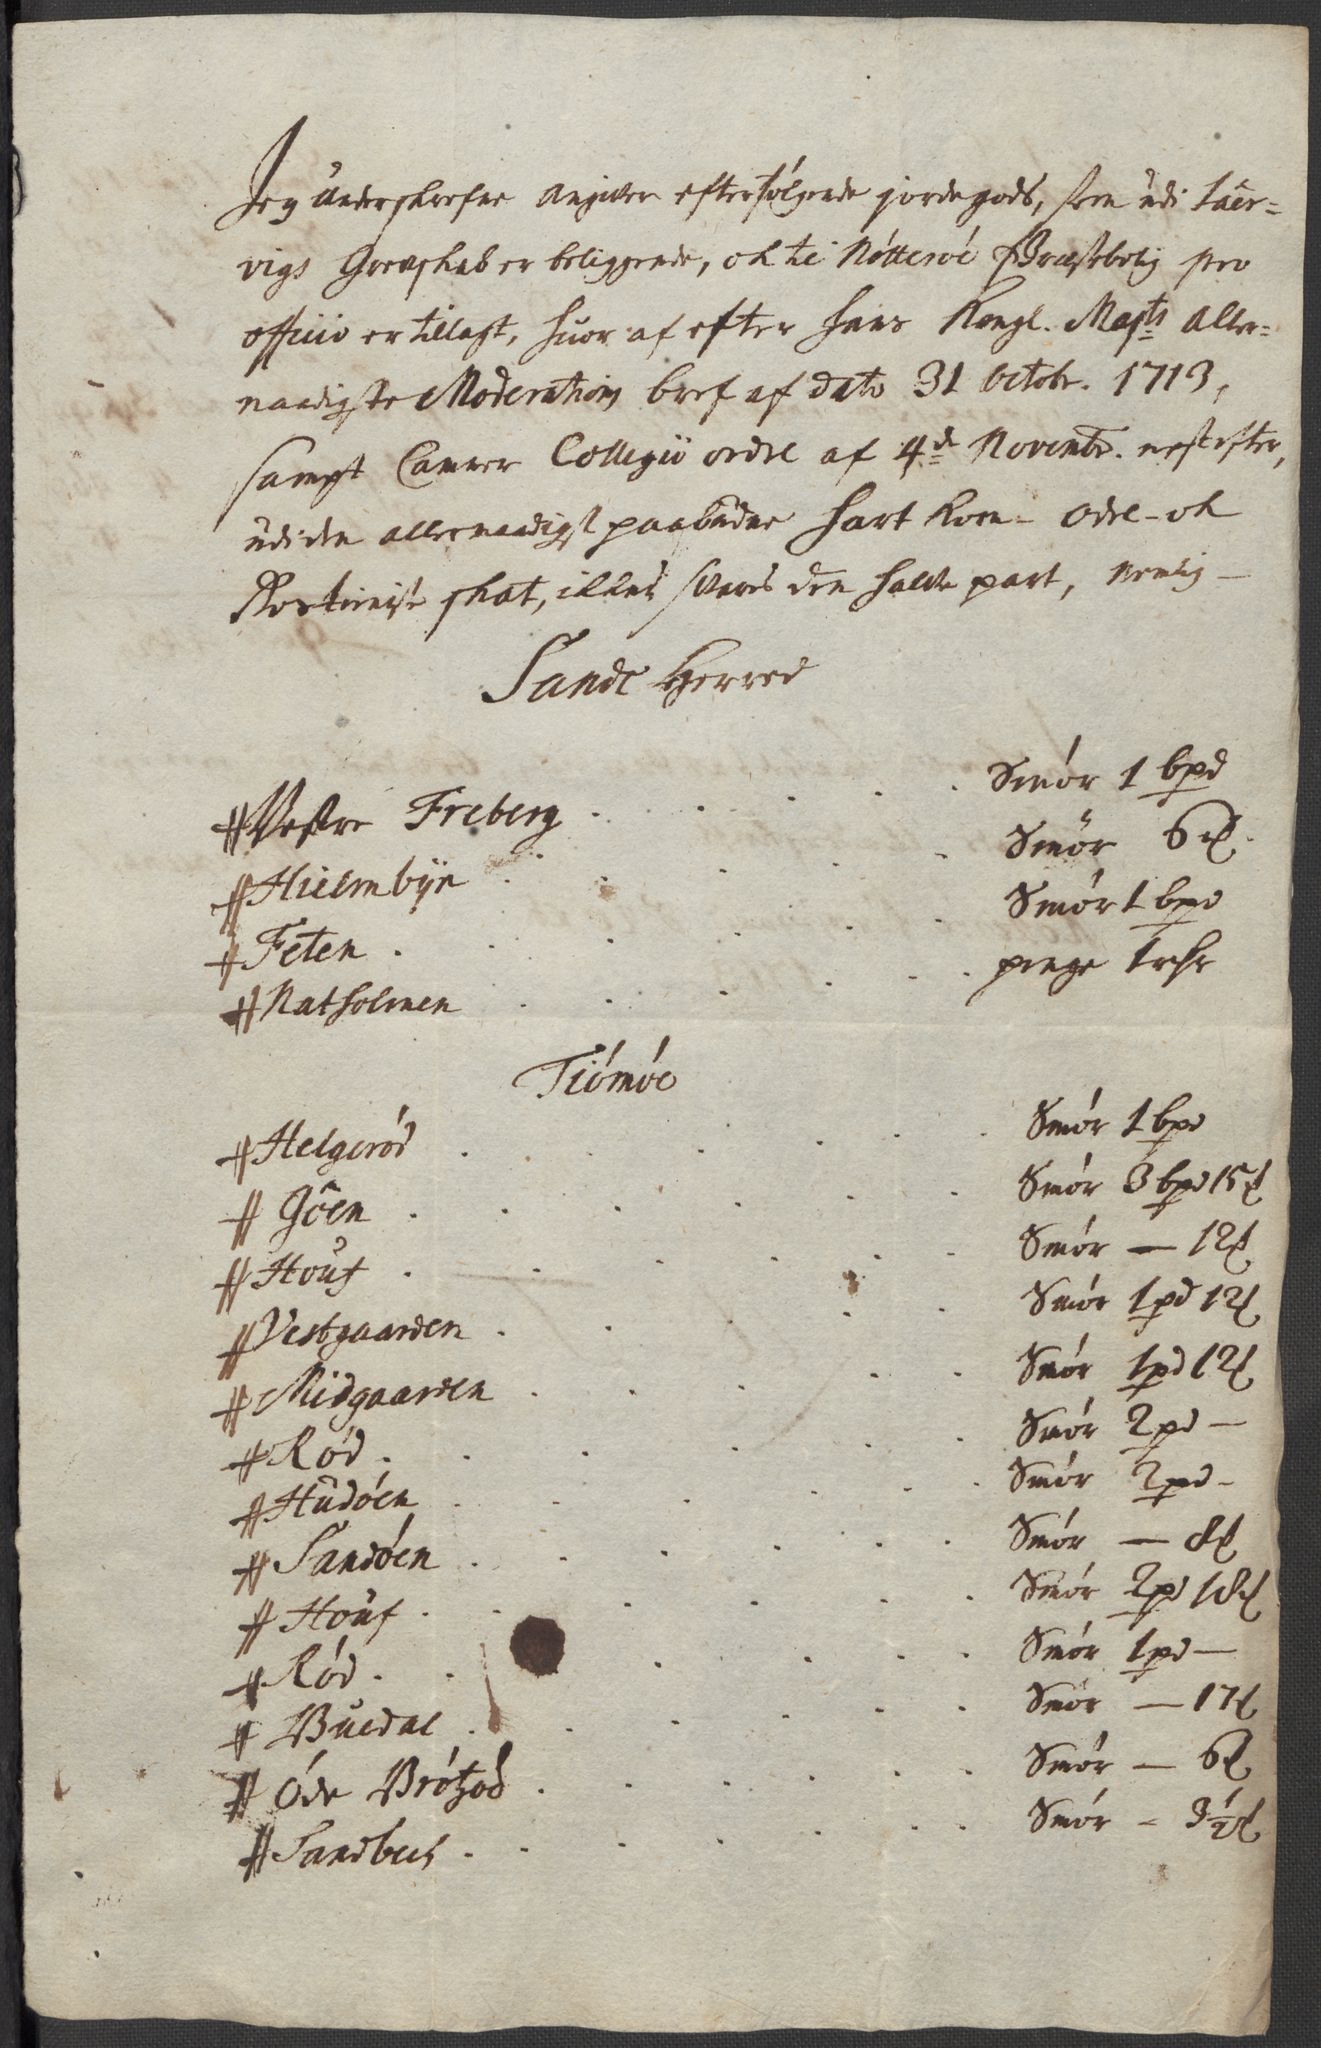 Jeg Underskrefne Angifver efterfølgende jordegods, som udi Laur-
vigs Grevskab er beliggende, och til Nötteröe Præstebolig pro
officio er tillagt, huor af efter Hans Kongl. Maj:ts Aller-
naadigste Moderations bref af dato 31 Octobr. 1713,
sampt Camer Collegii ordre af 4de Novembr. nest efter,
udi den allernaadigst paabudne Hart Korn- Odel- och
Rostieniste skat, ikkun svares den halve part, nemlig -
Sande Herred
# Vestre Freberg . . . . . Smör 1 bpd
# Hielmbÿe . . . . . Smör 6 ℔.
# Feten . . . . . Smör 1 bpd
# Natholmen . . . . . penge 1 ort
Tiömöe
# Helgeröd . . . . . Smör 1 bpd
# Göen . . . . . Smör 3 bpd 15 ℔
# Houf . . . . . Smör — 12 ℔
# Vestgaarden . . . . . Smör 1 pd 12 ℔
# Midgaarden . . . . . Smör 1 pd 12 ℔
# Röd . . . . . Smör 2 pd —
# Hudöen . . . . . Smör 2 pd -
# Sandöen . . . . . Smör — 8 ℔
# Houf . . . . . Smör 2 pd 18 ℔
# Röd . . . . . Smör 1 pd —
# Buedal . . . . . Smör — 17 ℔
# Öde Bröthod . . . . . Smör — 6 ℔
# Sandbech . . . . . Smör - 3½ ℔